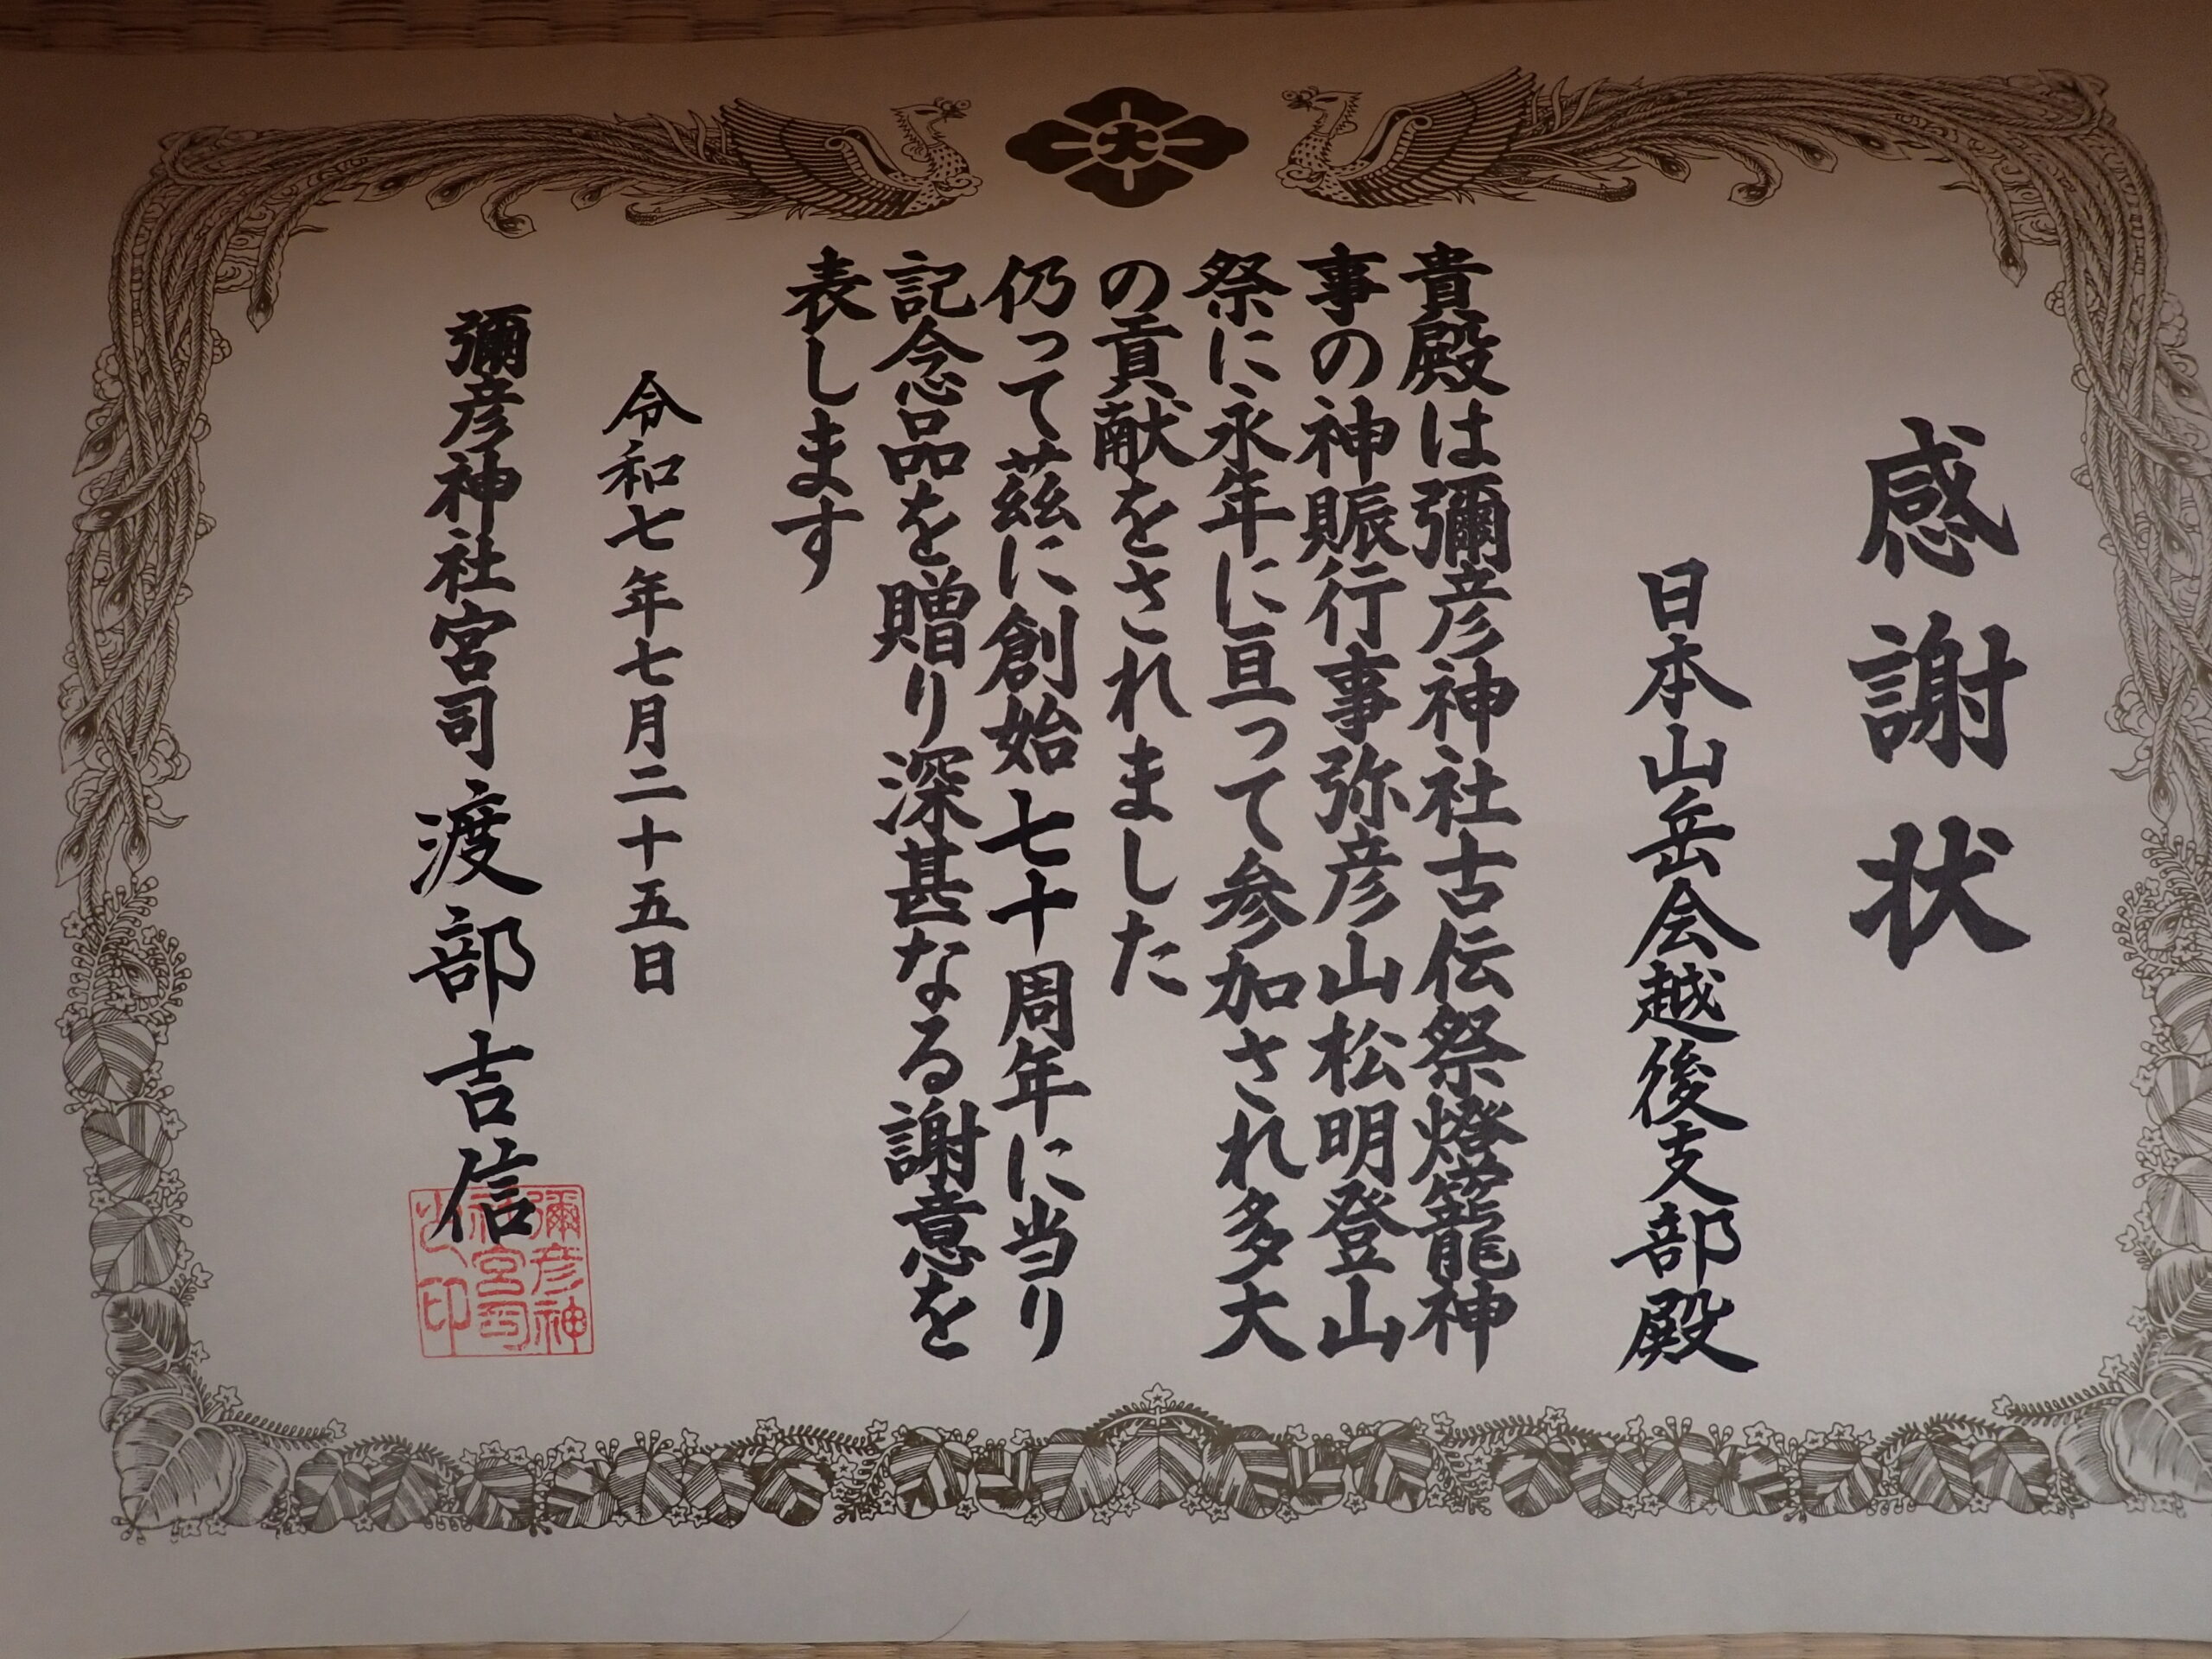 大
感謝状
日本山岳会越後支部殿
貴殿は彌彦神社古伝祭燈籠神
事の神賑行事弥彦山松明登山
祭に永年に亘って参加され多大
の貢献をされました
仍って茲に創始七十周年に当り
記念品を贈り深甚なる謝意を
表します
令和七年七月二十五日
彌彦神社宮司渡部吉信
彌彦神
社宮司
之印